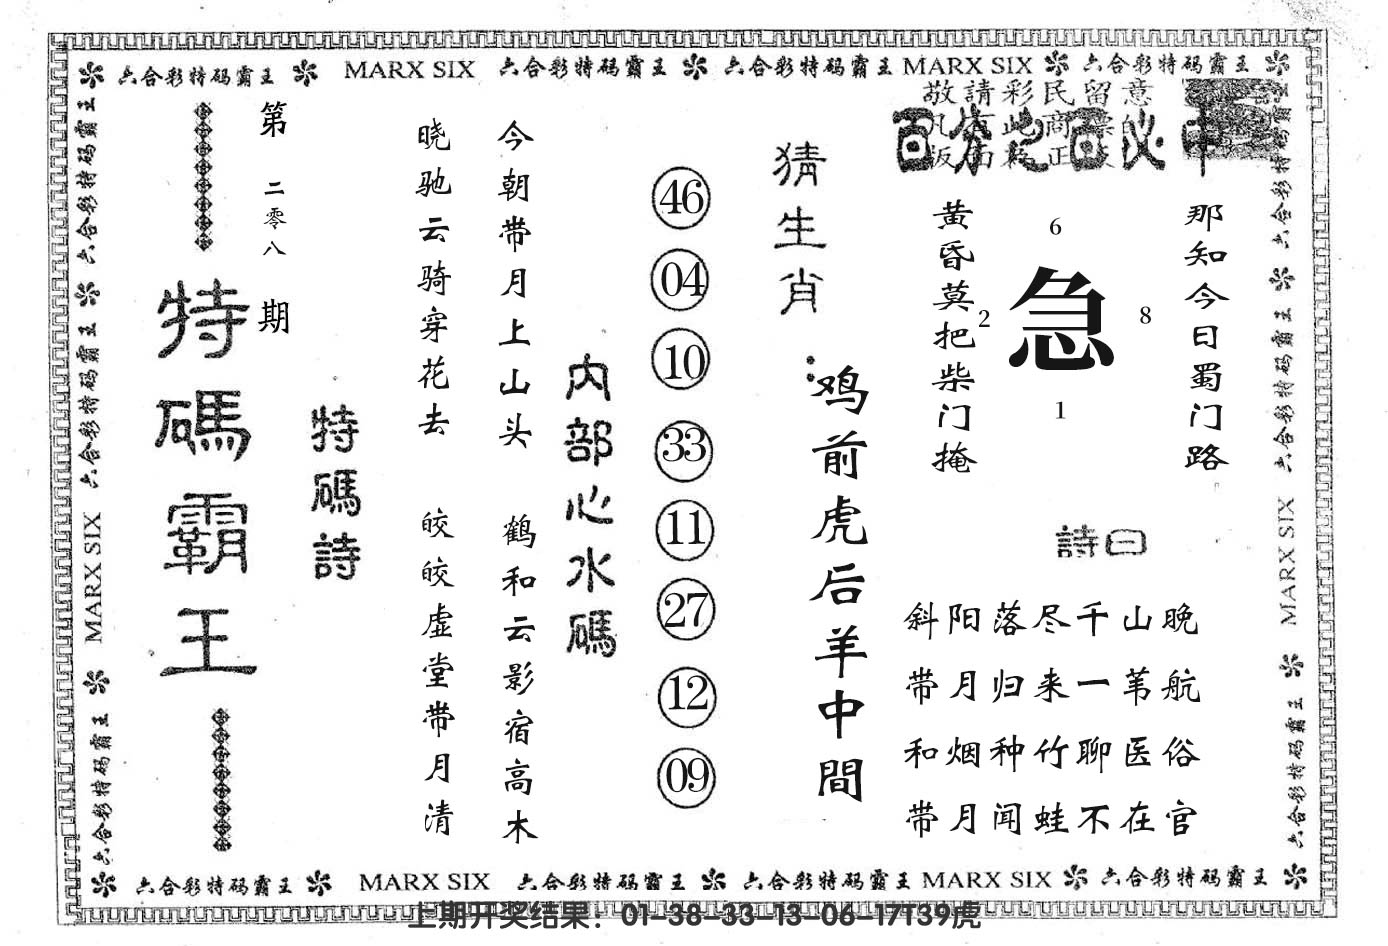 六合彩特码霸王 MARX SIX 六合彩特码霸王 六合彩特码霸王 MARX SIX 六合彩特码霸王
敬請彩民留意
百分之百必中
那知今日蜀门路
黄昏莫把柴门掩
6
2
急
8
1
詩曰
斜阳落尽千山晚
带月归来一苇航
和烟种竹聊医俗
带月闻蛙不在官
猜生肖:
鸡前虎后羊中間
46
04
10
33
11
27
12
09
内部心水碼
今朝带月上山头 鹤和云影宿高木
晓驰云骑穿花去 皎皎虚堂带月清
特碼詩
第二零八期
特碼霸王
六合彩特码霸王 六合彩特码霸王 MARX SIX 六合彩特码霸王
六合彩特码霸王 六合彩特码霸王 MARX SIX 六合彩特码霸王
六合彩特码霸王 MARX SIX 六合彩特码霸王 六合彩特码霸王 MARX SIX 六合彩特码霸王
上期开奖结果：01-38-33-13-06-17T39虎